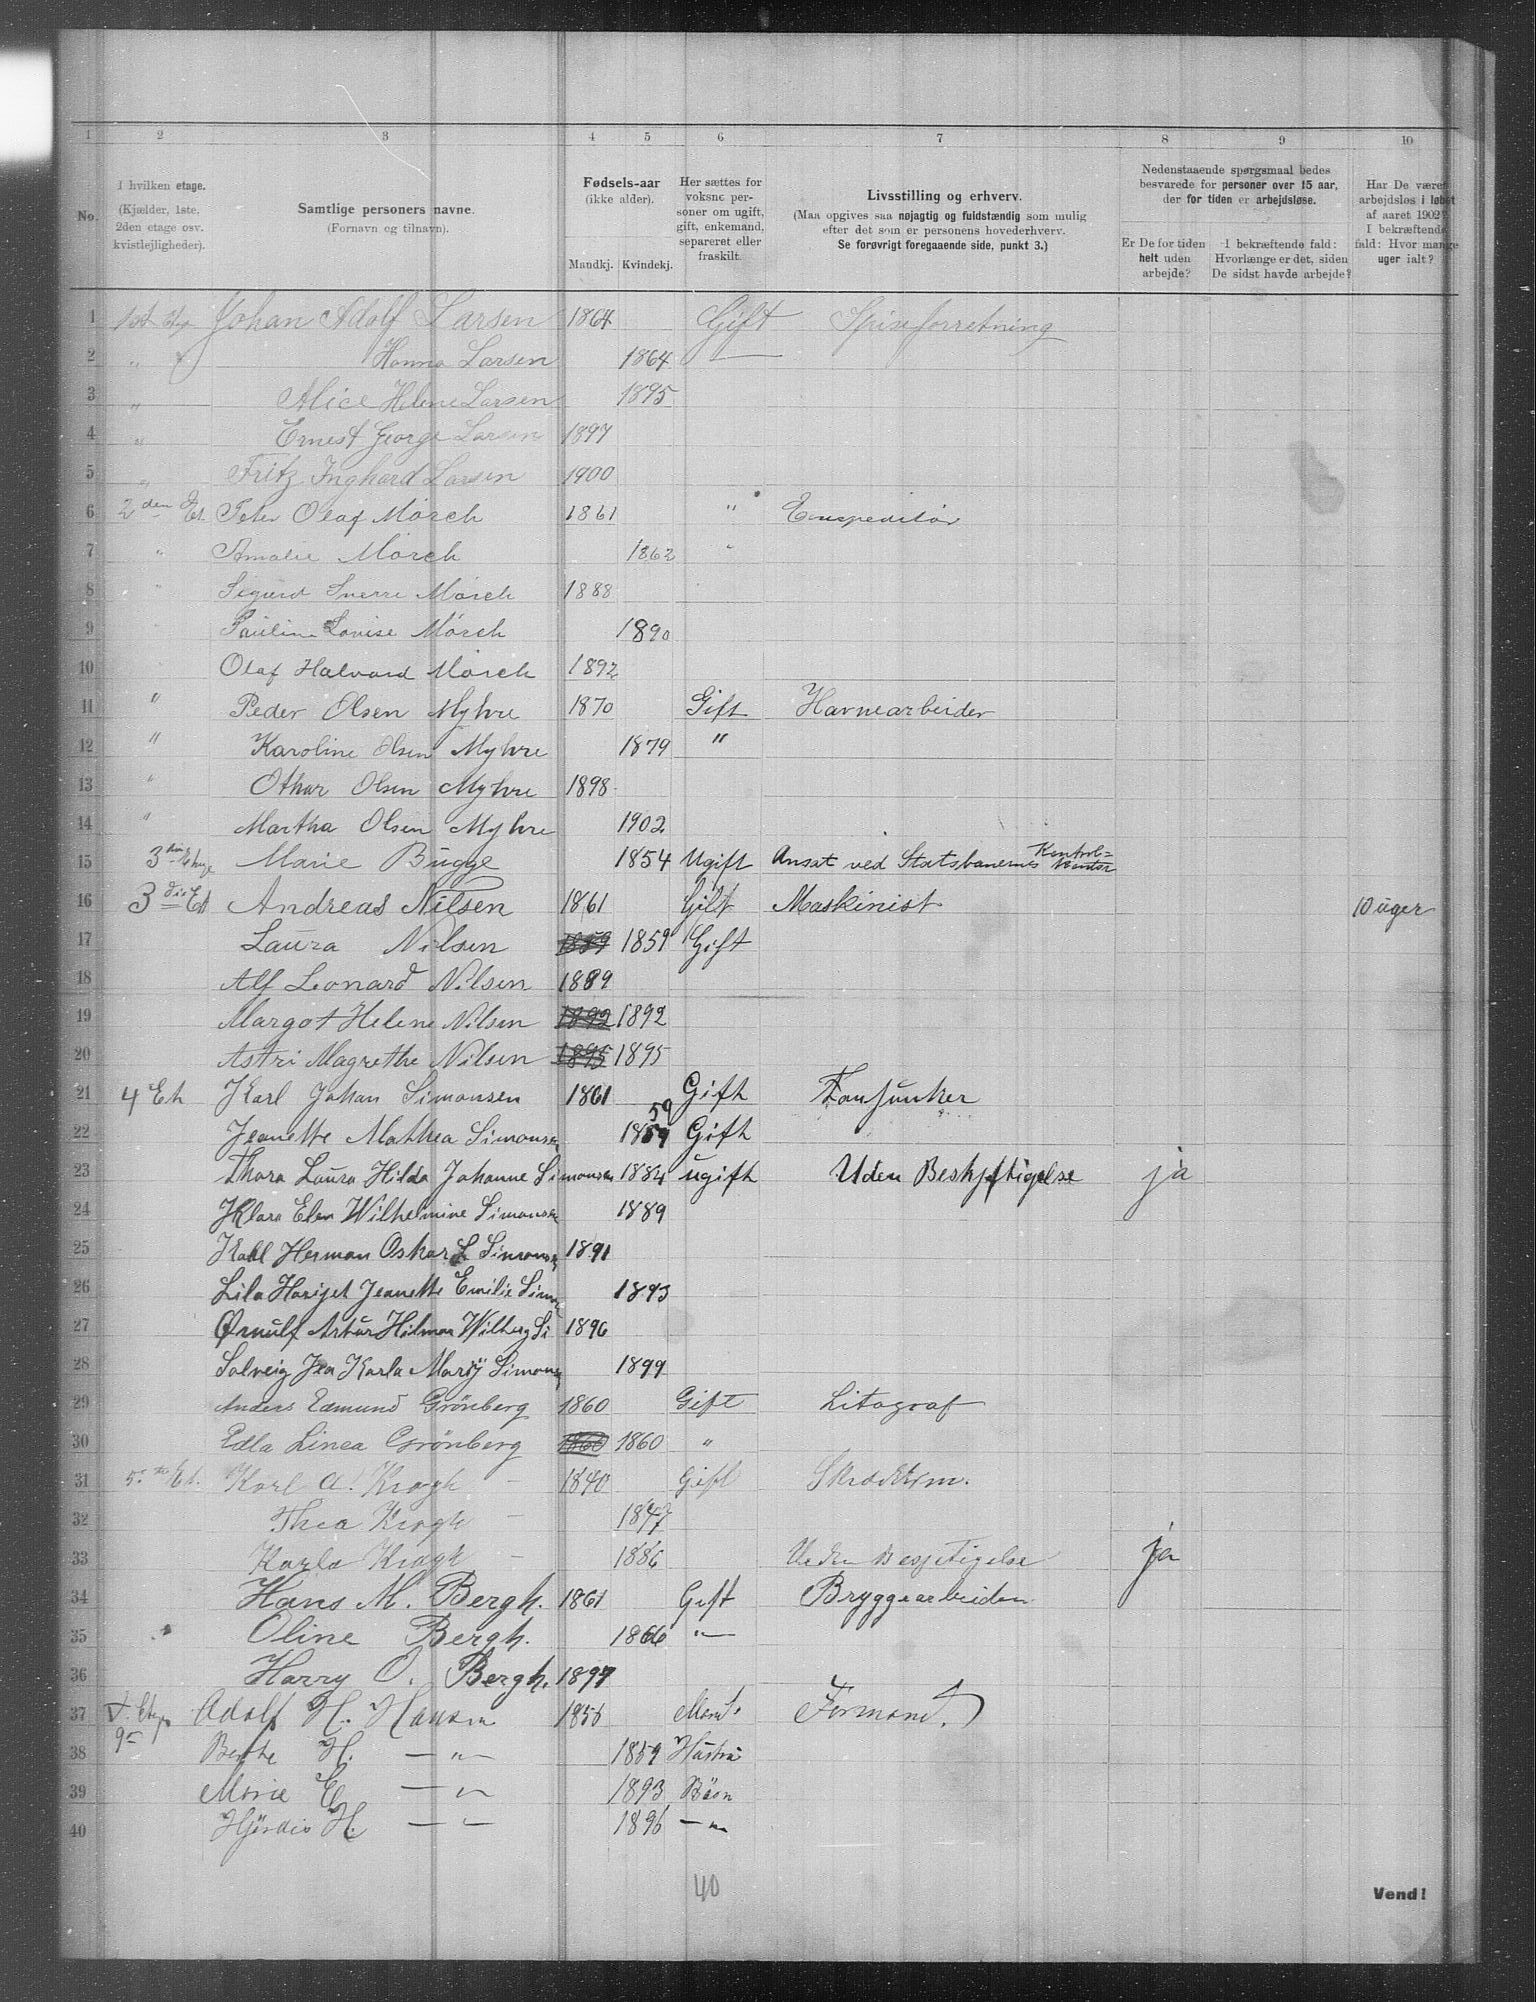 1 2 3 4 5 6 7 8 9 10
No.
I hvilken etage.
(Kjælder, 1ste, 2den etage osv. kvistlejligheder).
Samtlige personers navne.
(Fornavn og tilnavn).
Fødsels-aar
(ikke alder).
Mandkj. Kvindekj.
Her sættes for voksne personer om ugift, gift, enkemand, separeret eller fraskilt.
Livsstilling og erhverv.
(Maa opgives saa nøjagtig og fuldstændig som mulig
efter det som er personens hovederhverv.
Se forøvrigt foregaaende side, punkt 3.)
Nedenstaaende spørgsmaal bedes
besvarede for personer over 15 aar,
der for tiden er arbejdsløse.
Er De for tiden helt uden arbejde?
I bekræftende fald: Hvorlænge er det, siden De sidst havde arbejde?
Har De været arbejdsløs i løbet af aaret 1902? I bekræftende fald: Hvor mange uger ialt?
1 1st Johan Adolf Larsen 1864 Gift Spiseforretning
2 " Hanna Larsen 1864 —
3 " Alice Helene Larsen 1895
4 " Ernest George Larsen 1897
5 " Fritz Inghard Larsen 1900
6 2den Et Peter Olaf Mørch 1861 " Exspeditør
7 " Amalie Mørch 1862 "
8 " Sigurd Sverre Mørch 1888
9 Pauline Lovise Mørch 1890
10 Olaf Halvard Mørch 1892
11 " Peder Olsen Myhre 1870 Gift Havnearbeider
12 " Karoline Olsen Myhre 1879 "
13 " Othar Olsen Myhre 1898
14 " Martha Olsen Myhre 1902
15 3 Marie Bugge 1854 Ugift Ansat ved Statsbanernes Kontrol=kontor
16 3die Et Andreas Nilsen 1861 Gift Maskinist 10 uger
17 Laura Nilsen 1859 1859 Gift
18 Alf Leonard Nilsen 1889
19 Margot Helene Nilsen 1892 1892
20 Astri Magrethe Nilsen 1895 1895
21 4 Et Karl Johan Simonsen 1861 Gift
22 Jeanette Mathea Simonsen 1859 59 Gift
23 Thora Laura Hilda Johanne Simonsen 1884 ugift Uden Beskjftigelse ja
24 Klara Elen Wilhelmine Simonsen 1889
25 Karl Herman Oskar L Simonsen 1891
26 Lila Harijet Jeanette Emilie Simon 1893
27 Ørnulf Artur Hilmar Wilberg Si 1896
28 Solveig Jea Karla Marÿ Simonsen 1899
29 Anders Edmund Grönberg 1860 Gift Litograf
30 Edla Linea Grönberg 1860 1860 "
31 5.te Et. Karl A. Kragh — 1840 Gift
32 Thea Kragh — 1847
33 Karla Kragh — 1886 Uden Besjetigelse ja
34 Hans M. Bergh. 1861 Gift Bryggearbeider
35 Oline Bergh. 1866 "
36 Harry O. Bergh. 1897
37 Adolf H. Hansen 1856 Mand. Formand.
38 Berthe H. — " — 1859 Hustru
39 Marie E — " — 1893 Barn
40 Hjørdis H. — " — 1896 — " —
40
Vend!